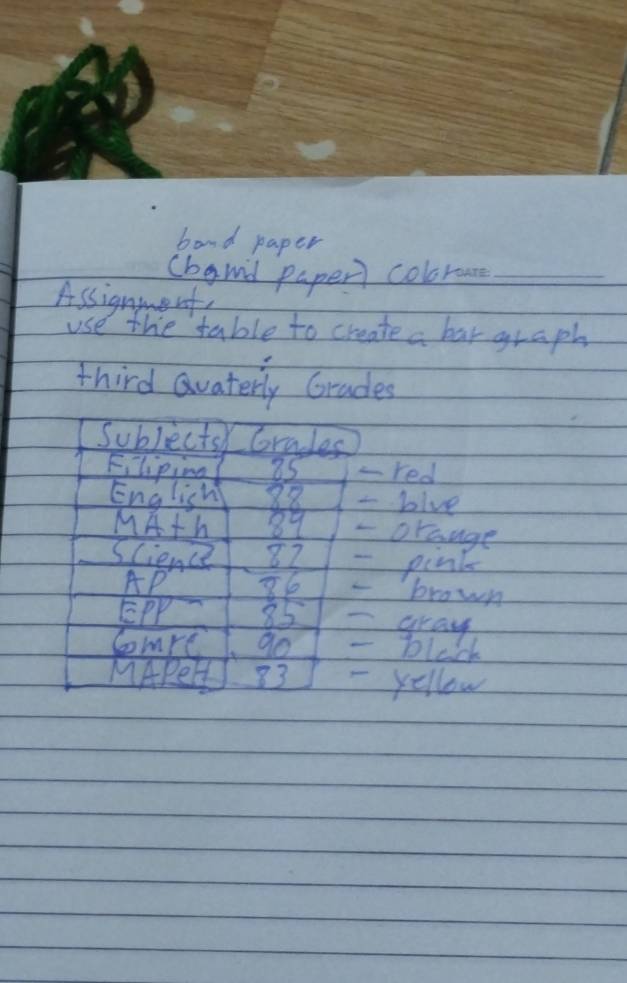 bond paper
(bond paper) color DATE:
Assignment,
use the table to create a bar graph
third Quaterly Grades
Subjects Grades
Filipino 85 - red
English 88 - blue
MAth 89 - orange
Science 87 - pink
AP 86 - brown
EPP 85 - gray
Gmrc 90 - black
MAPeH 83 - yellow